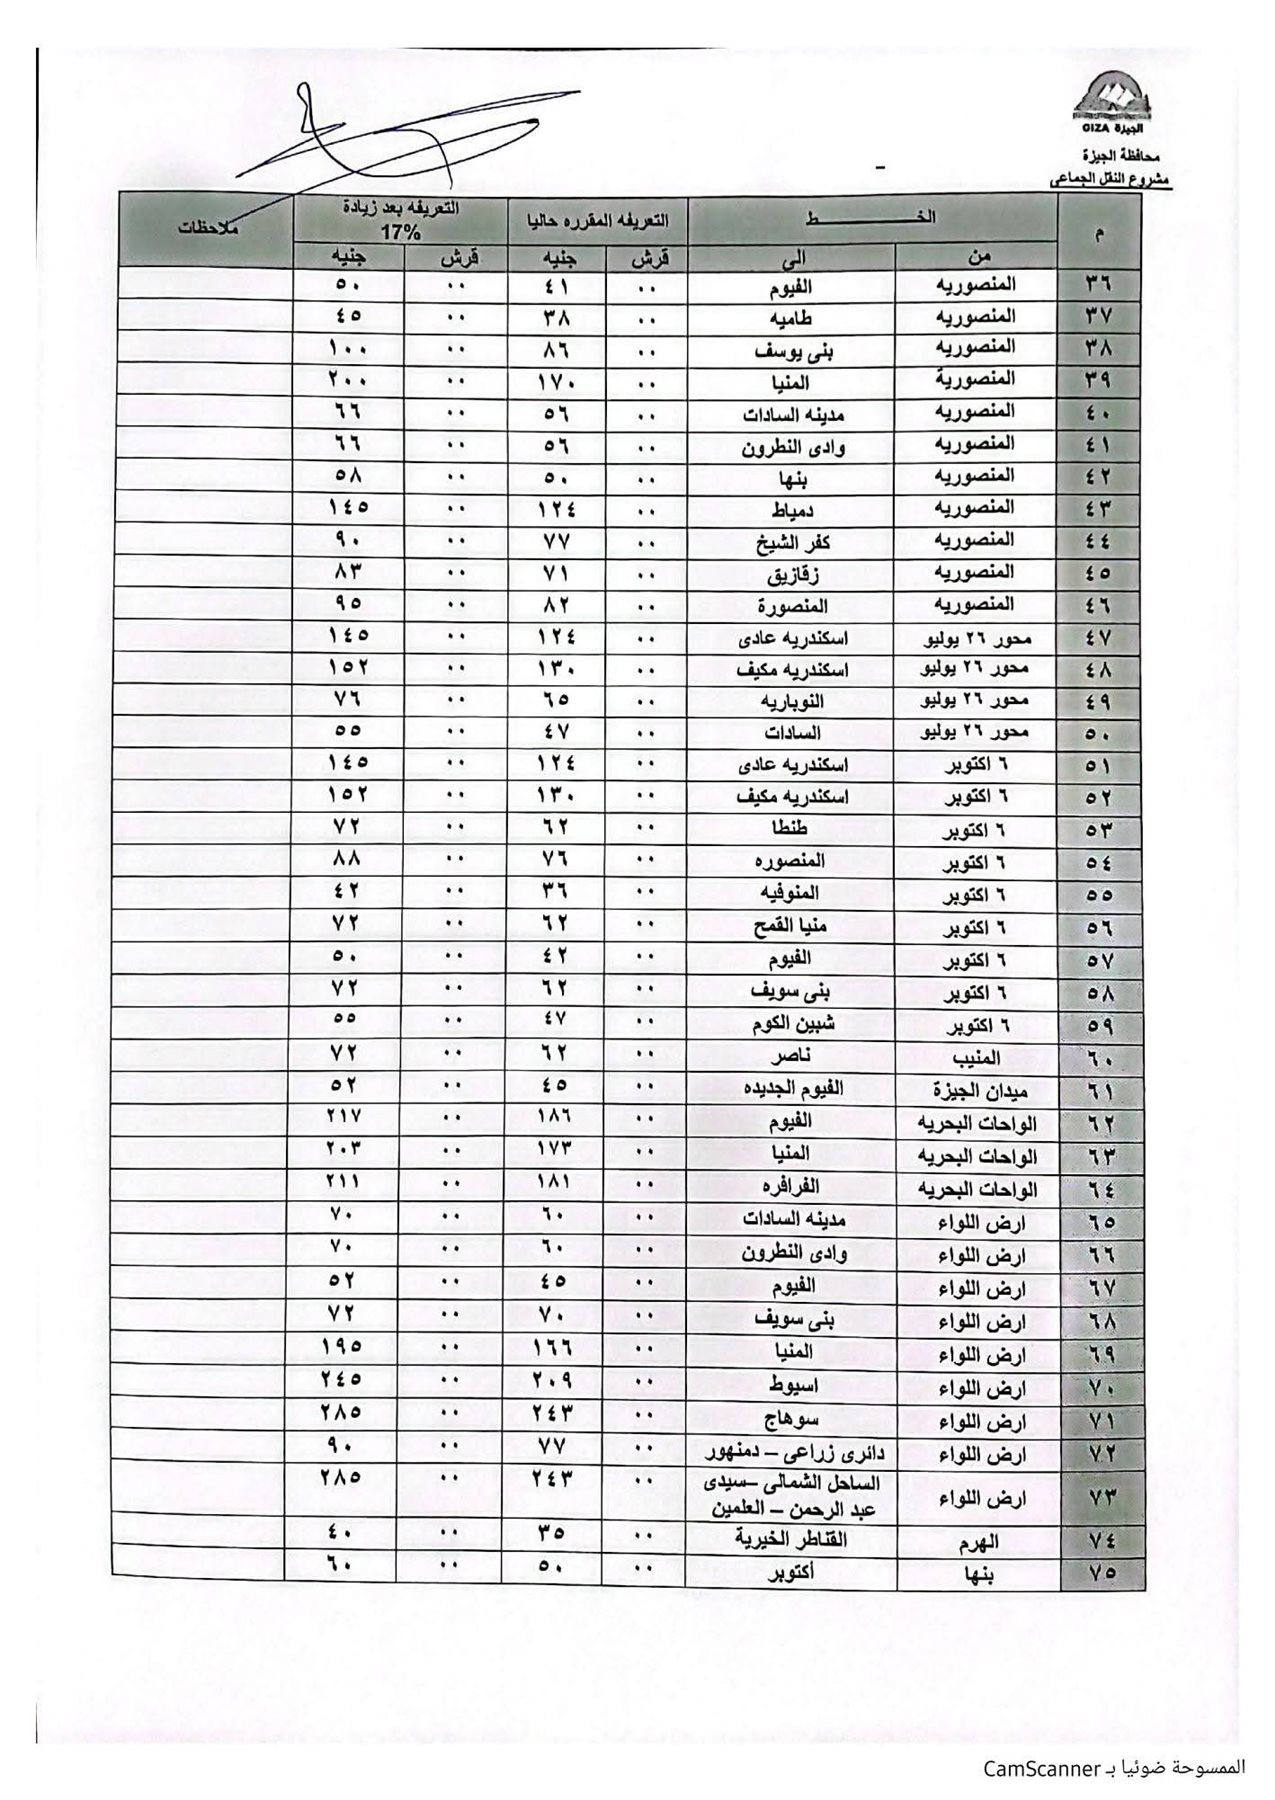 الجيزة GIZA
محافظة الجيزة
مشروع النقل الجماعى
م الخــــــــــــط التعريفه المقرره حاليا التعريفه بعد زيادة 17% ملاحظات
من الى قرش جنيه قرش جنيه
٣٦ المنصوريه الفيوم ٠٠ ٤١ ٠٠ ٥٠
٣٧ المنصوريه طاميه ٠٠ ٣٨ ٠٠ ٤٥
٣٨ المنصوريه بنى يوسف ٠٠ ٨٦ ٠٠ ١٠٠
٣٩ المنصورية المنيا ٠٠ ١٧٠ ٠٠ ٢٠٠
٤٠ المنصوريه مدينه السادات ٠٠ ٥٦ ٠٠ ٦٦
٤١ المنصوريه وادى النطرون ٠٠ ٥٦ ٠٠ ٦٦
٤٢ المنصوريه بنها ٠٠ ٥٠ ٠٠ ٥٨
٤٣ المنصوريه دمياط ٠٠ ١٢٤ ٠٠ ١٤٥
٤٤ المنصوريه كفر الشيخ ٠٠ ٧٧ ٠٠ ٩٠
٤٥ المنصوريه زقازيق ٠٠ ٧١ ٠٠ ٨٣
٤٦ المنصوريه المنصورة ٠٠ ٨٢ ٠٠ ٩٥
٤٧ محور ٢٦ يوليو اسكندريه عادى ٠٠ ١٢٤ ٠٠ ١٤٥
٤٨ محور ٢٦ يوليو اسكندريه مكيف ٠٠ ١٣٠ ٠٠ ١٥٢
٤٩ محور ٢٦ يوليو النوباريه ٠٠ ٦٥ ٠٠ ٧٦
٥٠ محور ٢٦ يوليو السادات ٠٠ ٤٧ ٠٠ ٥٥
٥١ ٦ اكتوبر اسكندريه عادى ٠٠ ١٢٤ ٠٠ ١٤٥
٥٢ ٦ اكتوبر اسكندريه مكيف ٠٠ ١٣٠ ٠٠ ١٥٢
٥٣ ٦ اكتوبر طنطا ٠٠ ٦٢ ٠٠ ٧٢
٥٤ ٦ اكتوبر المنصوره ٠٠ ٧٦ ٠٠ ٨٨
٥٥ ٦ اكتوبر المنوفيه ٠٠ ٣٦ ٠٠ ٤٢
٥٦ ٦ اكتوبر منيا القمح ٠٠ ٦٢ ٠٠ ٧٢
٥٧ ٦ اكتوبر الفيوم ٠٠ ٤٢ ٠٠ ٥٠
٥٨ ٦ اكتوبر بنى سويف ٠٠ ٦٢ ٠٠ ٧٢
٥٩ ٦ اكتوبر شبين الكوم ٠٠ ٤٧ ٠٠ ٥٥
٦٠ المنيب ناصر ٠٠ ٦٢ ٠٠ ٧٢
٦١ ميدان الجيزة الفيوم الجديده ٠٠ ٤٥ ٠٠ ٥٢
٦٢ الواحات البحريه الفيوم ٠٠ ١٨٦ ٠٠ ٢١٧
٦٣ الواحات البحريه المنيا ٠٠ ١٧٣ ٠٠ ٢٠٣
٦٤ الواحات البحريه الفرافره ٠٠ ١٨١ ٠٠ ٢١١
٦٥ ارض اللواء مدينه السادات ٠٠ ٦٠ ٠٠ ٧٠
٦٦ ارض اللواء وادى النطرون ٠٠ ٦٠ ٠٠ ٧٠
٦٧ ارض اللواء الفيوم ٠٠ ٤٥ ٠٠ ٥٢
٦٨ ارض اللواء بنى سويف ٠٠ ٧٠ ٠٠ ٧٢
٦٩ ارض اللواء المنيا ٠٠ ١٦٦ ٠٠ ١٩٥
٧٠ ارض اللواء اسيوط ٠٠ ٢٠٩ ٠٠ ٢٤٥
٧١ ارض اللواء سوهاج ٠٠ ٢٤٣ ٠٠ ٢٨٥
٧٢ ارض اللواء دائرى زراعى – دمنهور ٠٠ ٧٧ ٠٠ ٩٠
٧٣ ارض اللواء الساحل الشمالى –سيدى ٠٠ ٢٤٣ ٠٠ ٢٨٥
عبد الرحمن – العلمين
٧٤ الهرم القناطر الخيرية ٠٠ ٣٥ ٠٠ ٤٠
٧٥ بنها أكتوبر ٠٠ ٥٠ ٠٠ ٦٠
الممسوحة ضوئيا بـ CamScanner